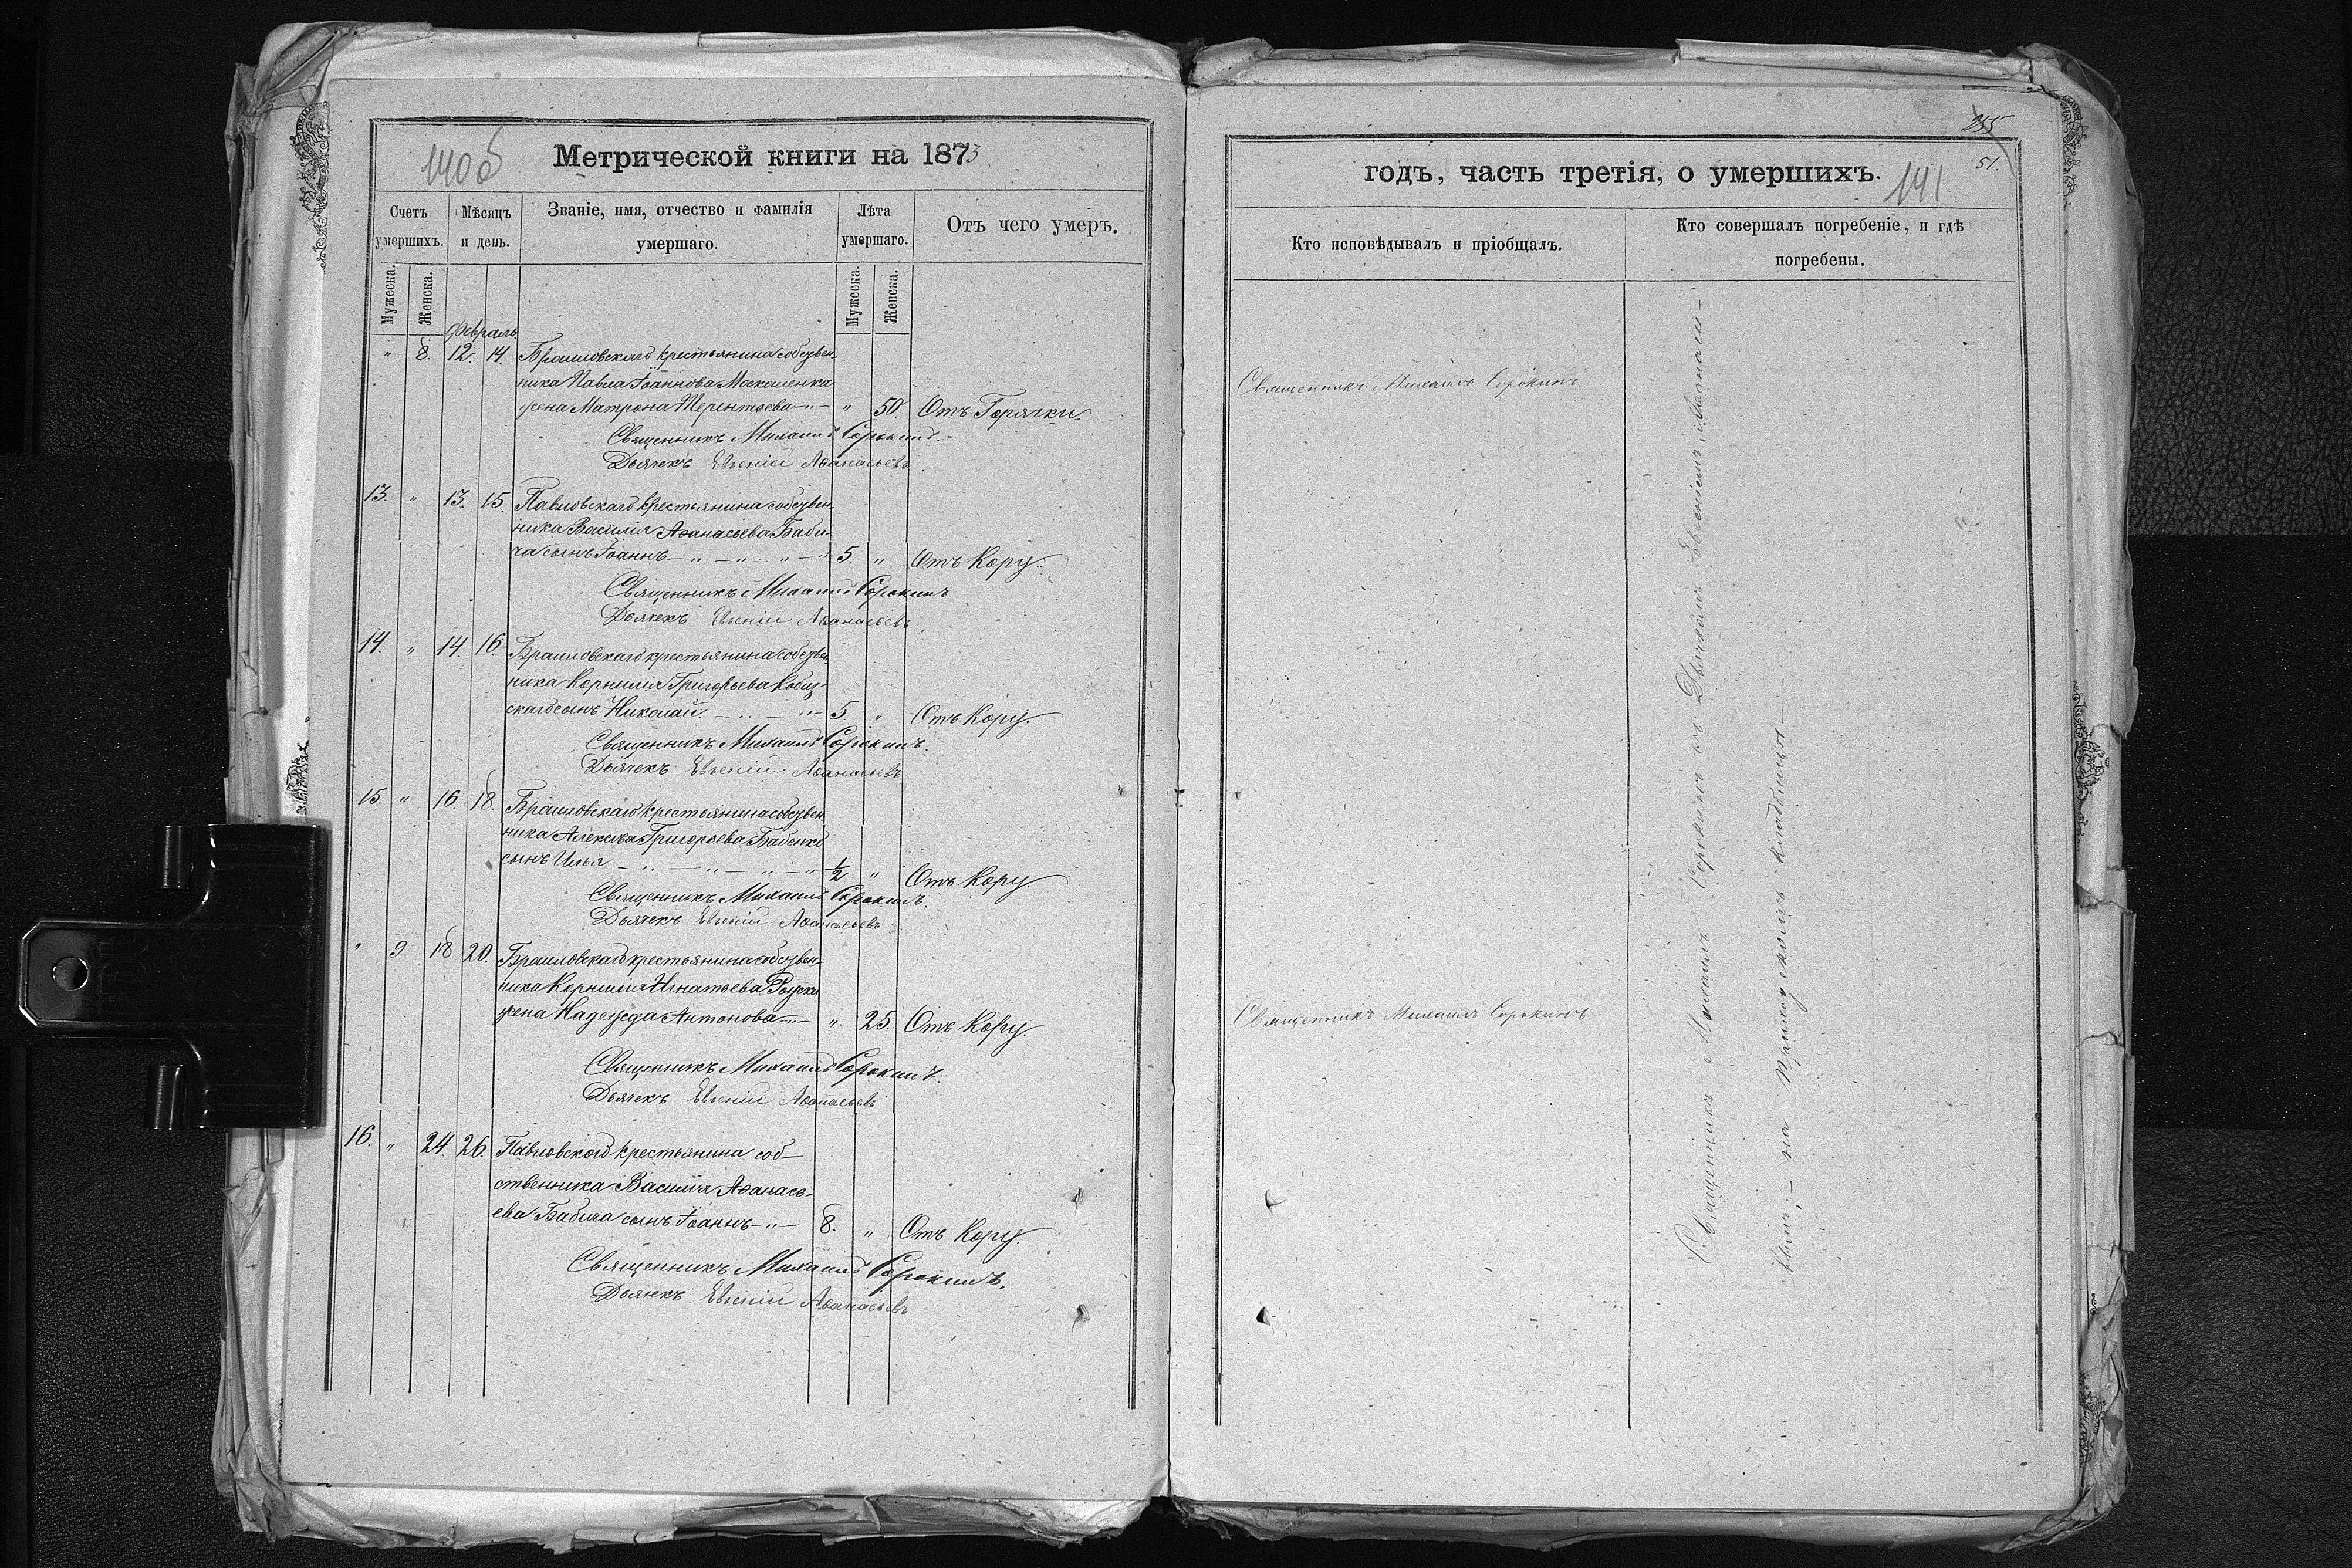 140об
Метрической книги на 1873
Счетъ умершихъ.
Мѣсяцъ и день.
Званіе, имя, отчество и фамилія умершаго.
Лѣта умершаго.
Отъ чего умеръ.
Мужеска.
Женска.
Мужеска.
Женска.
Февраль
" 8. 12. 14. Браиловскаго крестьянина собствен-
ника Павла Іоаннова Москаленка
жена Матрона Терентьева " 50. Отъ Горячки.
Священникъ Михаилъ Сорокинъ.
Дьячекъ Евгеній Аѳанасьевъ
13. " 13. 15. Павловскаго крестьянина собствен-
ника Василія Аѳанасьева Баби-
ча сынъ Іоаннъ 5. " Отъ Кору.
Священникъ Михаилъ Сорокинъ
Дьячекъ Евгеній Аѳанасьевъ
14. " 14. 16. Браиловскаго крестьянина собствен
ника Корнилія Григорьева
скаго сынъ Николай. 5. " Отъ Кору.
Священникъ Михаилъ Сорокинъ.
Дьячекъ Евгеній Аѳанасьевъ
15. " 16. 18. Браиловскаго крестьянина собствен
ника Алексѣя Григорьева Бабенко
сынъ Илья 1/2 " Отъ Кору
Священникъ Михаилъ Сорокинъ.
Дьячекъ Евгеній Аѳанасьевъ
" 9 18. 20. Браиловскаго крестьянина собствен-
ника Корнилія Игнатьева
жена Надежда Антонова " 25. Отъ Кору.
Священникъ Михаилъ Сорокинъ.
Дьячекъ Евгеній Аѳанасьевъ
16. " 24. 26 Павловскаго крестьянина соб-
ственника Василія Аѳанась-
ева Бабича сынъ Іоаннъ 8. " Отъ Кору.
Священникъ Михаилъ Сорокинъ.
Дьячекъ Евгеній Аѳанасьевъ
255
51.
141
годъ, часть третія, о умершихъ.
Кто исповѣдывалъ и пріобщалъ.
Кто совершалъ погребеніе, и гдѣ погребены.
Священникъ Михаилъ Сорокинъ
Священникъ Михаилъ Сорокинъ
Священникъ Михаилъ Сорокинъ съ Дьячкомъ Евгеніемъ Аѳанась-
евымъ, – на приходскомъ кладбищѣ